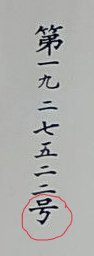 第一九二七五二二号